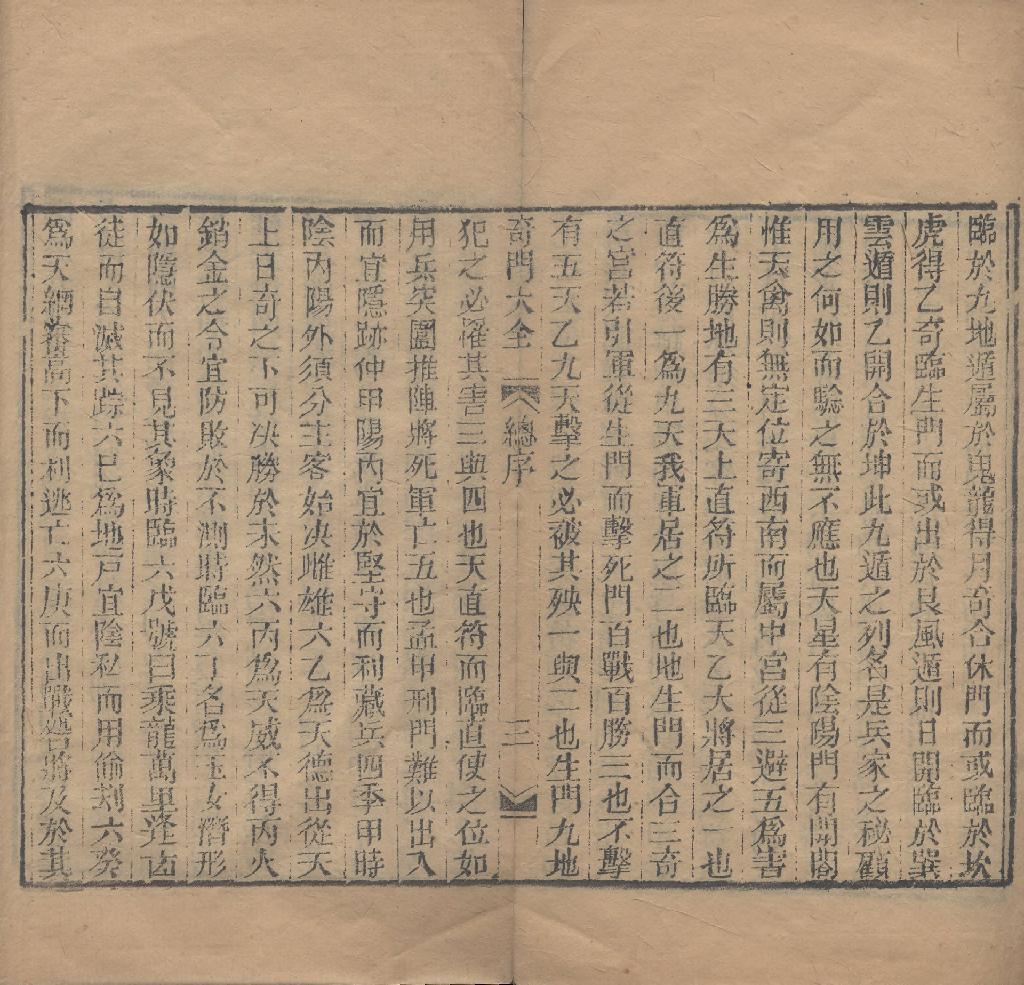 臨於九地遁屬於鬼龍得月奇合休門而或臨於坎
虎得乙奇臨生門而或出於艮風遁則日開臨於巽
雲遁則乙開合於坤此九遁之列名是兵家之秘顧
用之何如而驗之無不應也天星有陰陽門有開闔
惟天禽則無定位寄西南而屬中宮從三避五爲害
爲生勝地有三天上直符所臨天乙大將居之一也
直符後一爲九天我軍居之二也地生門而合三奇
之宮若引軍從生門而擊死門百戰百勝三也不擊
有五天乙九天擊之必被其殃一與二也生門九地
奇門大全 總序 三
犯之必罹其害三與四也天直符而臨直使之位如
用兵突圍推陣將死軍亡五也孟甲刑門難以出入
而宜隱跡仲甲陽內宜於堅守而利藏兵四季甲時
陰內陽外須分主客始决雌雄六乙爲天德出從天
上日奇之下可决勝於未然六丙爲天威不得丙火
銷金之令宜防敗於不測時臨六丁名爲玉女潛形
如隱伏而不見其象時臨六戊號曰乘龍萬里逢凶
徒而自滅其踪六巳爲地戸宜陰私而用偷刦六癸
爲天網在高下而利逃亡六庚而出戰將及於其